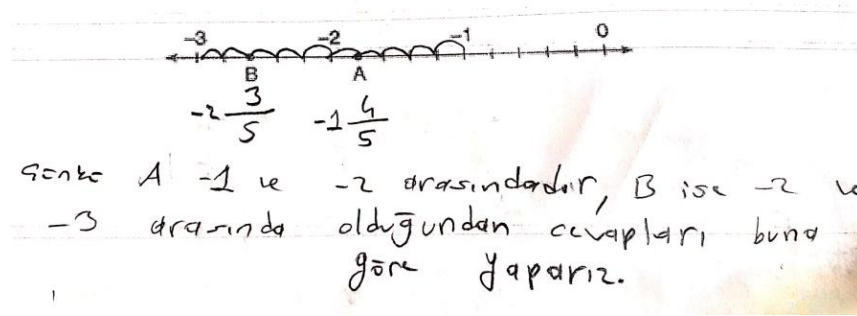 -3 -2 -1 0
B A
-2 3/5 -1 4/5
Çünkü A -1 ve -2 arasındadır, B ise -2 ve
-3 arasında olduğundan cevapları buna
göre yaparız.